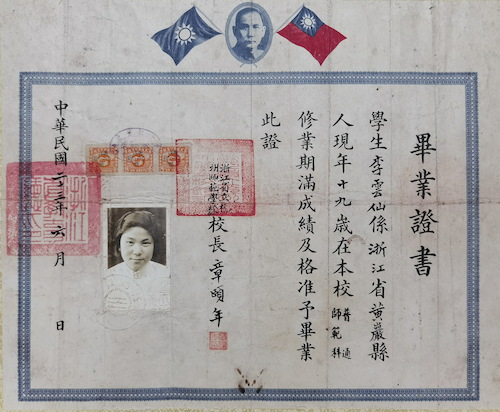 畢業證書
學生李雲仙係浙江省黃巖縣
人現年十九歲在本校普通師範科
修業期滿成績及格准予畢業
此證
校長章頤年
中華民國二十三年六月 日